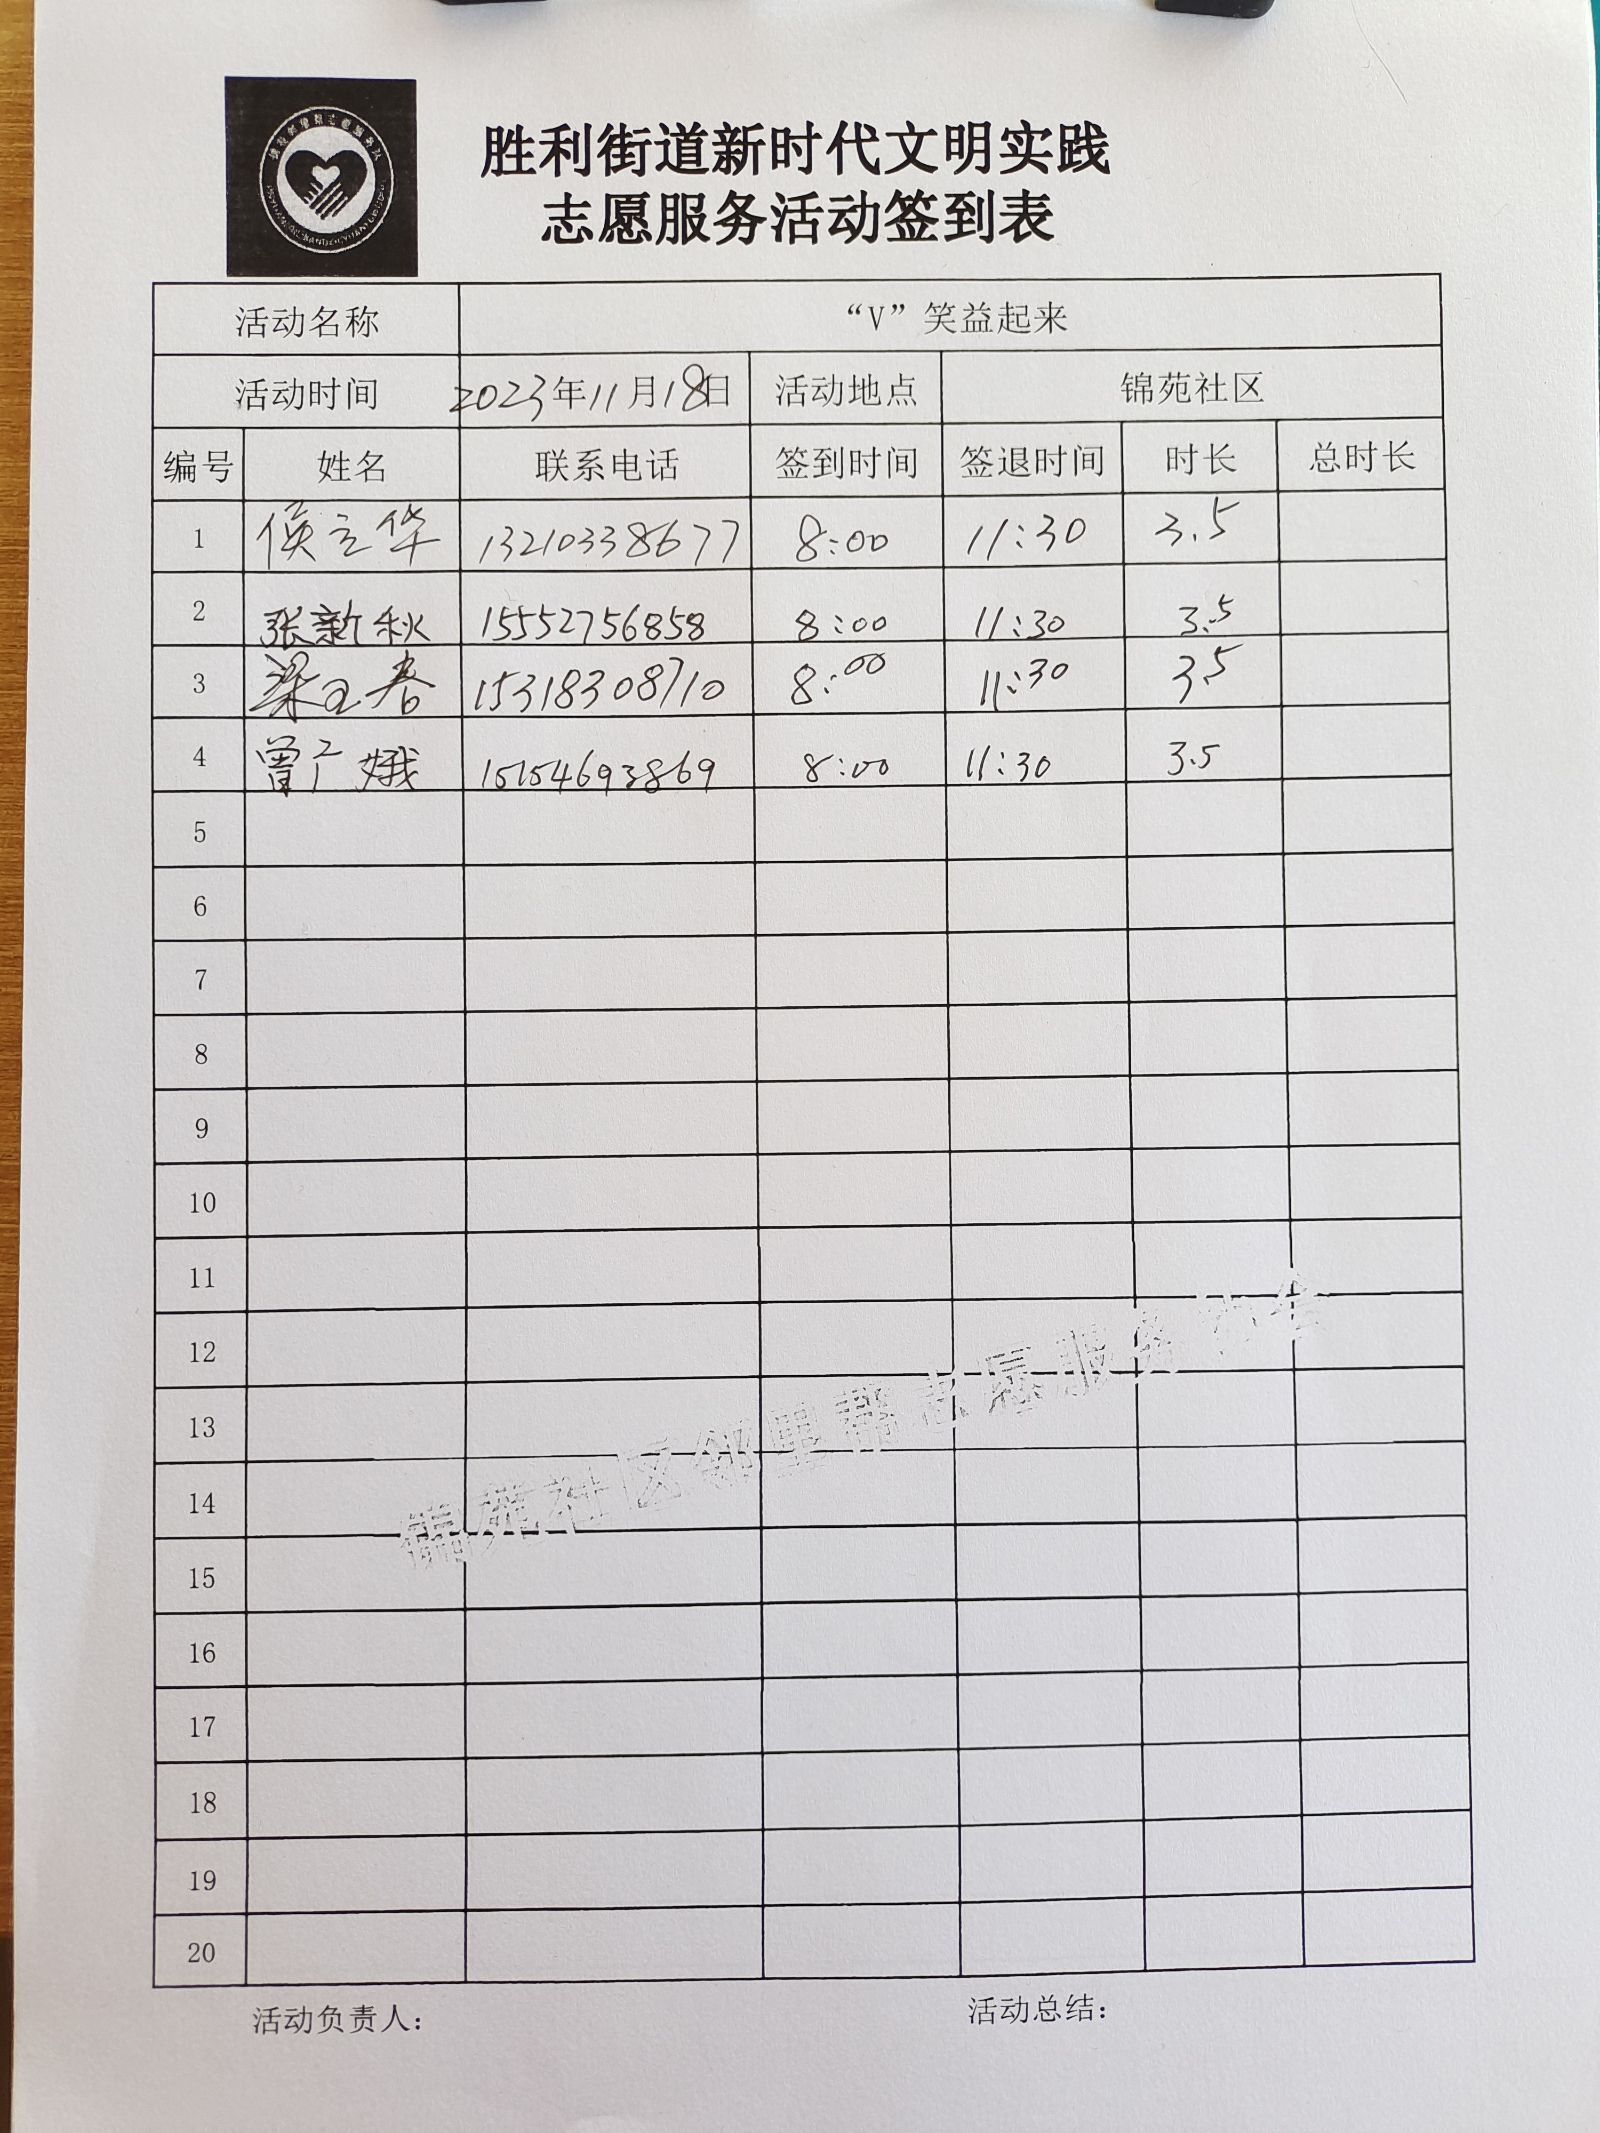 胜利街道新时代文明实践
志愿服务活动签到表
活动名称 “V”笑益起来
活动时间 2023年11月18日 活动地点 锦苑社区
编号 姓名 联系电话 签到时间 签退时间 时长 总时长
1 侯立华 13210338677 8:00 11:30 3.5
2 张新秋 15552756858 8:00 11:30 3.5
3 梁 春 15318308710 8:00 11:30 3.5
4 曾广娥 15154693869 8:00 11:30 3.5
5
6
7
8
9
10
11
12
13
14
15
16
17
18
19
20
锦苑社区邻里帮志愿服务协会
活动负责人： 活动总结：